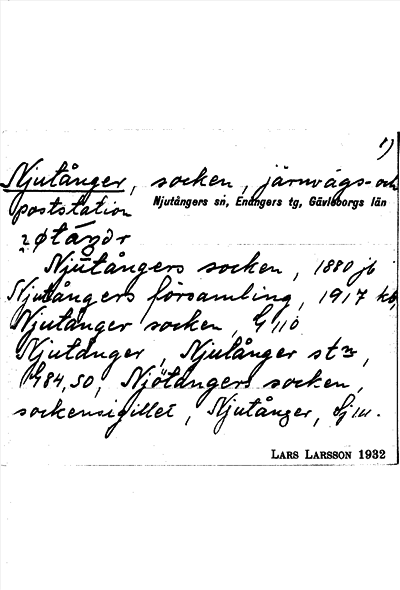 1)
Njutånger, socken, järnvägs- och
poststation Njutångers sn, Enångers tg, Gävleborgs län
Njutångers socken, 1880 jb
Njutångers församling, 1917 kb,
Njutånger socken, G 110
Njutånger, Njutånger st:n,
84, 50, Njötångers socken,
sockensigillet, Njutånger,
LARS LARSSON 1932